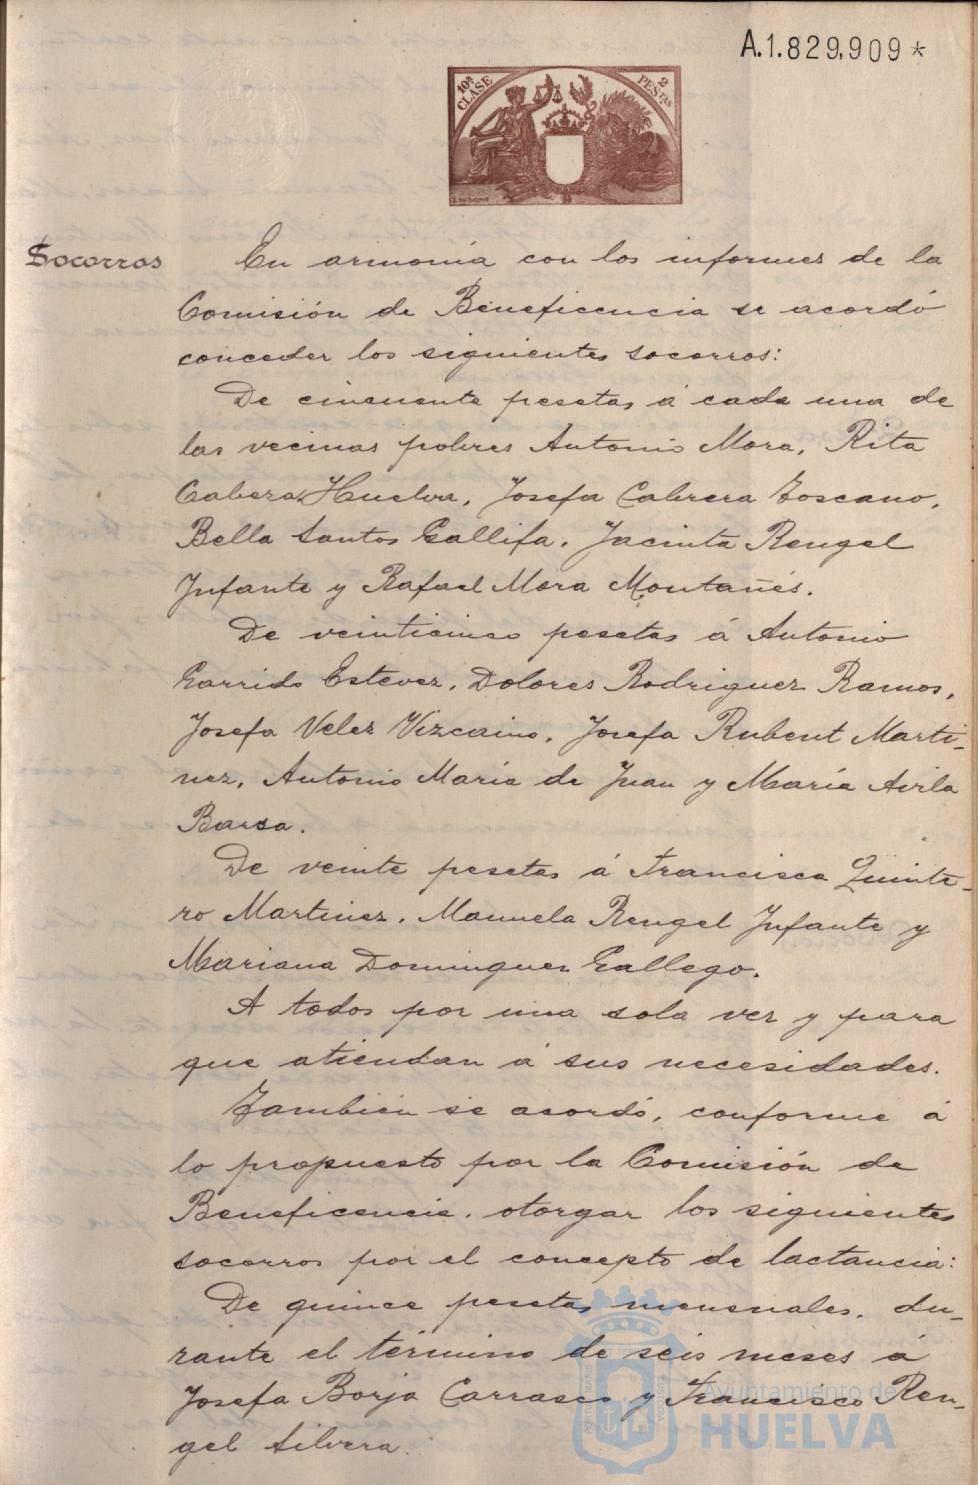 A.1.829,909*
10ª CLASE
2 PESTAS
Socorros
En armonía con los informes de la
Comisión de Beneficencia se acordó
conceder los siguientes socorros:
De cincuenta pesetas á cada una de
las vecinas pobres Antonio Mora, Rita
Cabeza Huelva, Josefa Cabrera Toscano,
Bella Santos Gallifa, Jacinta Rengel
Infante y Rafael Mora Montañés.
De veinticinco pesetas á Antonio
Garrido Estevez, Dolores Rodriguez Ramos,
Josefa Velez Vizcaino, Josefa Rubent Marti-
nez, Antonio María de Juan y María Avila
Barsa.
De veinte pesetas á Francisca Quinte-
ro Martinez, Manuela Rengel Infante y
Mariana Dominguez Gallego.
A todos por una sola vez y para
que atiendan á sus necesidades.
También se acordó, conforme á
lo propuesto por la Comisión de
Beneficencia, otorgar los siguientes
socorros por el concepto de lactancia:
De quince pesetas mensuales, du-
rante el término de seis meses á
Josefa Borja Carrasco y Francisco Ren-
gel Silvera.
Ayuntamiento de
HUELVA